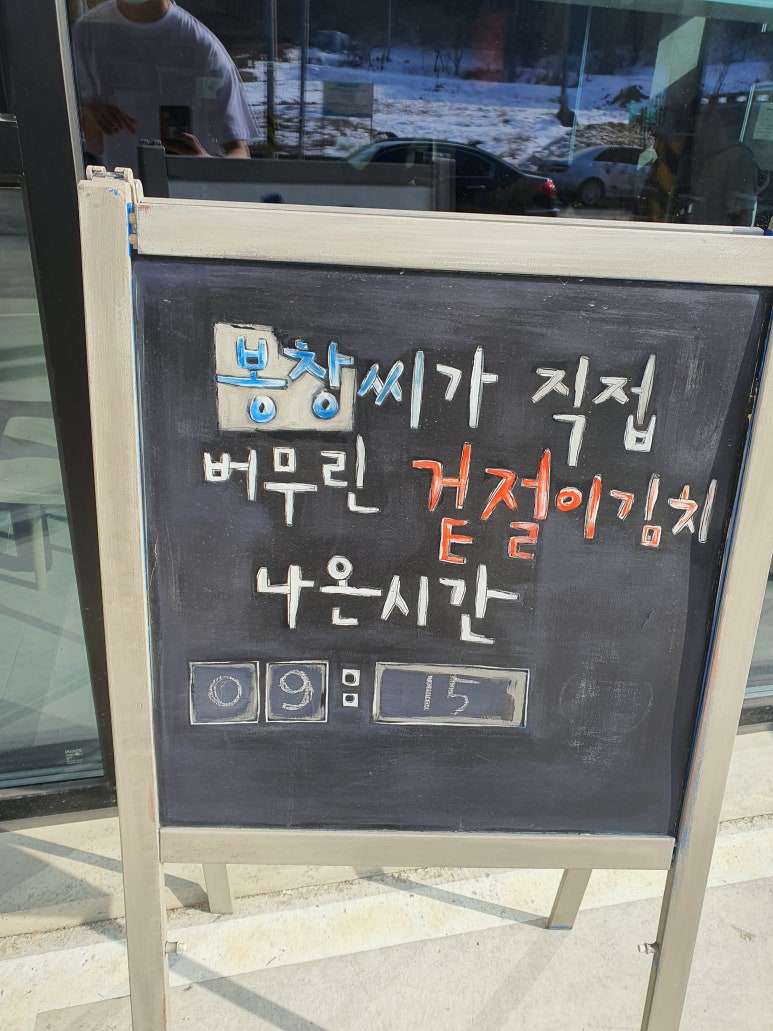 봉창씨가 직접
버무린 겉절이김치
나온시간
09:15